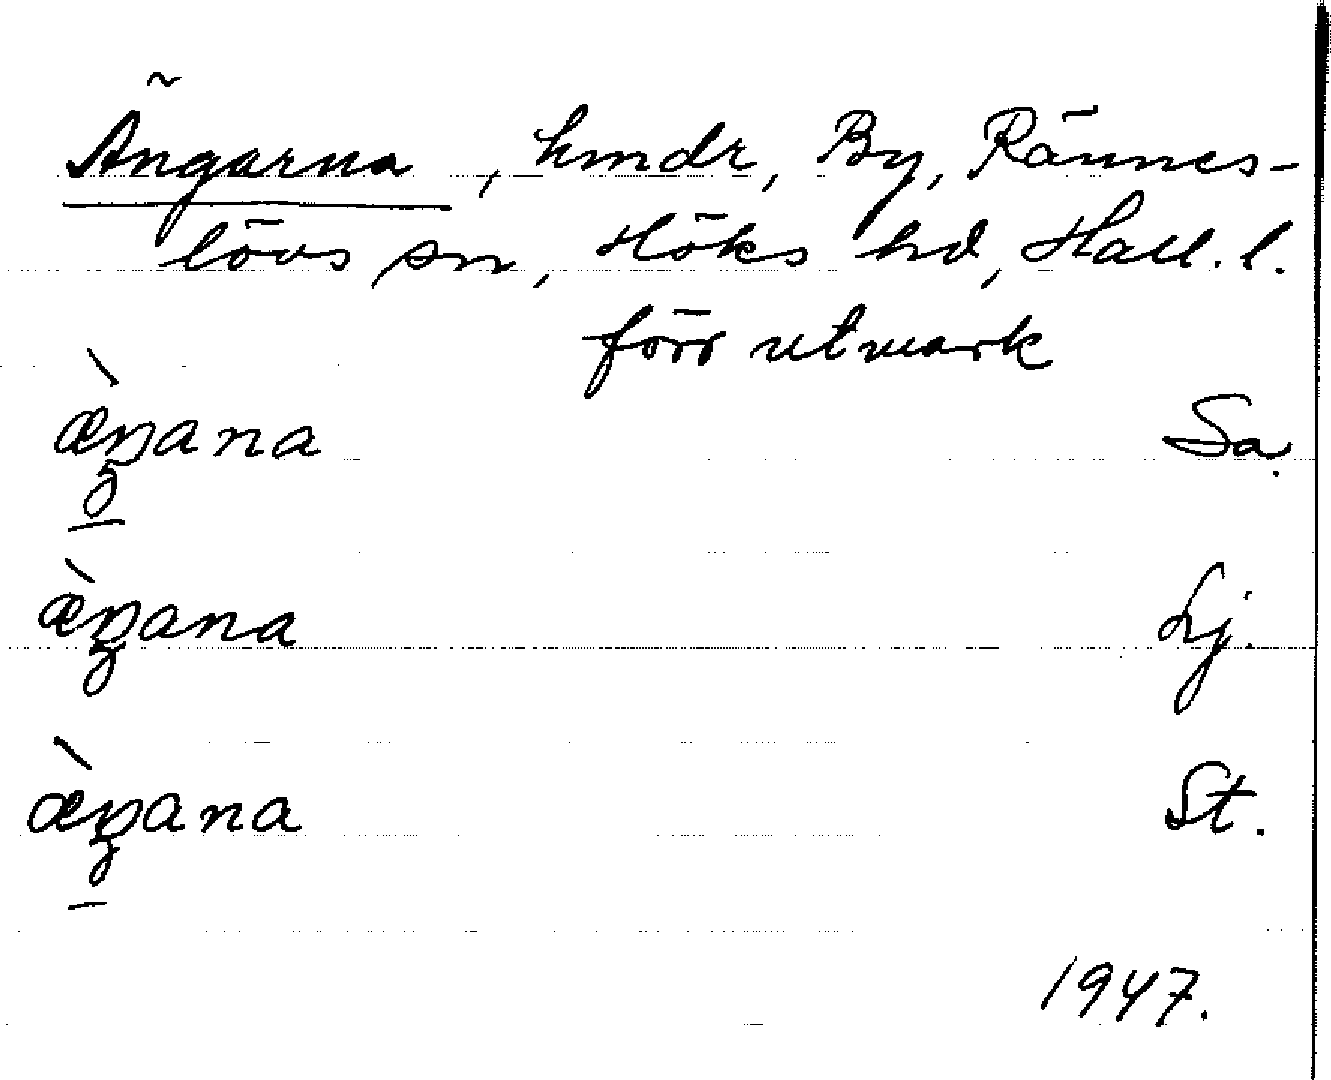 Ängarna, hmdr, By, Rännes-
lövs sn, Höks hd, Hall. l.
förr utmark
æ̀ŋana Sa.
æ̀ŋana Lj.
æ̀ŋana St.
1947.